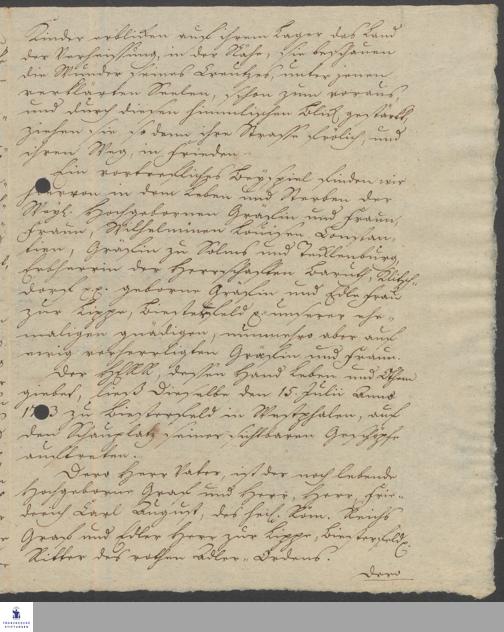 Kinder erblicken auf ihrem Lager das Land
der Verheissung, in der Nähe, sie beschauen
die Wunder seines Creutzes, unter jenen
verklärten Seelen, schon zum voraus,
und durch diesen himmlischen Blick gestärkt,
ziehen sie so denn ihre Strasse frölich, und
ihren Weg, in Frieden.
Ein vortrefliches Beyspiel finden wir
hiervon in dem Leben und Sterben der
Weyl. Hochgebornen Gräfin und Frauen,
Frauen, Wilhelminen Louisen Constan-
tien, Gräfin zu Solms und Tecklenburg,
Erbherrin der Herrschaften Baruth, Klitsch-
dorf pp. geborne Gräfin und Edle Frau
zur Lippe, Biesterfeld p. unserer ehe-
maligen gnädigen, nunmehro aber auf
ewig verherrligten Gräfin und Frauen.
Der HERR, dessen Hand Leben und Othem
giebet, ließ Dieselbe den 15. Julii Anno
zu Biesterfeld in Westphalen, auf
den Schauplatz seiner sichtbaren Geschöpfe
auftreten.
Dero Herr Vater, ist der noch lebende
Hochgeborne Graf und Herr, Herr Frie-
derich Carl August, des heil. Röm. Reichs
Graf und Edler Herr zur Lippe, Biesterfeld p.
Ritter des rothen Adler-Ordens.
Dero
FRANCKESCHE
STIFTUNGEN